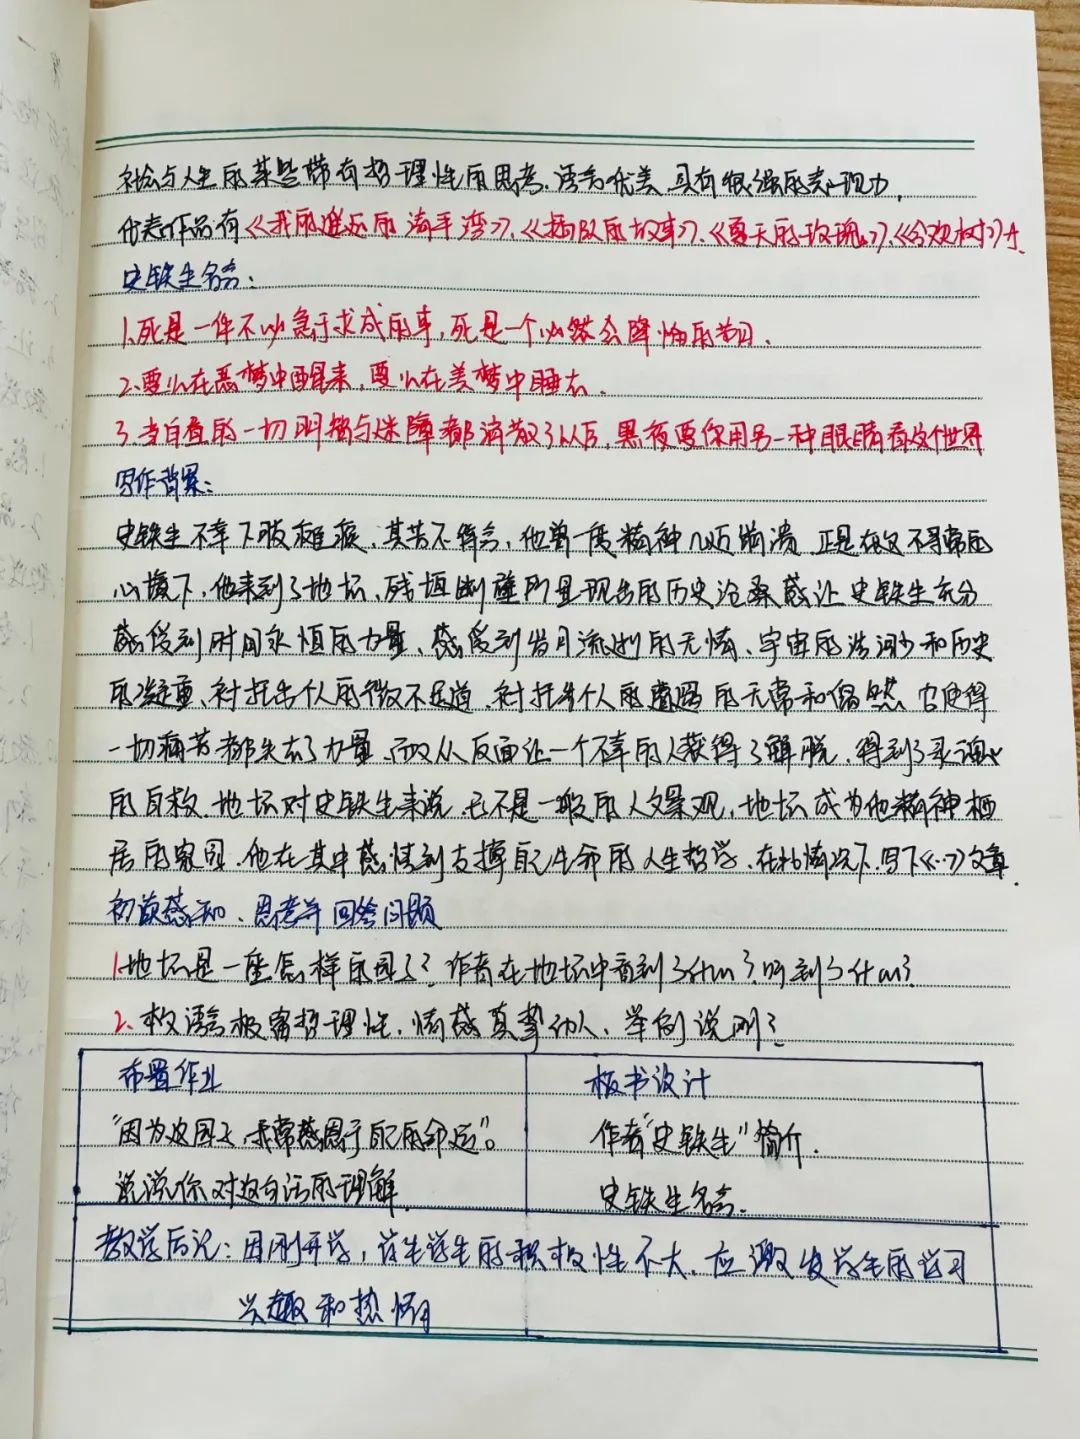 社会与人生的某些带有哲理性的思考,语言优美,具有很强的表现力,
代表作品有《我的遥远的清平湾》、《插队的故事》、《夏天的玫瑰》、《合欢树》等.
史铁生名言:
1.死是一件不必急于求成的事,死是一个必然会降临的节日.
2.要么在恶梦中醒来,要么在美梦中睡去.
3.当白昼的一切明智与迷障都消散了以后,黑夜要你用另一种眼睛看这个世界
写作背景:
史铁生不幸下肢瘫痪,其苦不得言,他曾一度精神几近崩溃,正是在这不寻常的
心境下,他来到了地坛,残垣断壁所显现出的历史沧桑感让史铁生充分
感受到时间永恒的力量、感受到岁月流逝的无情、宇宙的浩渺和历史
的凝重,衬托出个人的微不足道,衬托出个人的遭遇的无常和偶然.它使得
一切痛苦都失去了力量,而又从反面让一个不幸的人获得了解脱,得到了灵魂
的自救.地坛对史铁生来说,已不是一般的人文景观,地坛成为他精神栖
居的家园,他在其中感悟到支撑自己生命的人生哲学,在此情况下,写下《…》文章.
初读感知、思考并回答问题
1.地坛是一座怎样的园子?作者在地坛中看到了什么?听到了什么?
2.本文语言极富哲理性,情感真挚动人,举例说明?
布置作业
"因为这园子,我常感恩于自己的命运"。
说说你对这句话的理解.
板书设计
作者"史铁生"简介.
史铁生名言.
教学后记:因刚开学,学生的积极性不大,应激发学生的学习
兴趣和热情